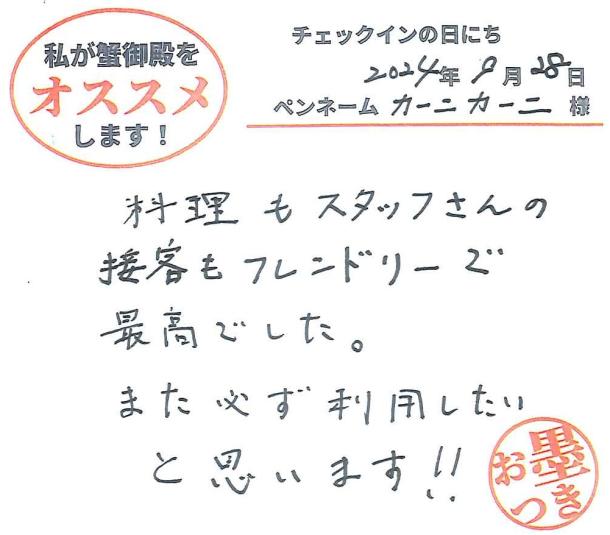 私が蟹御殿を
オススメ
します！
チェックインの日にち
2024年9月28日
ペンネーム カーニカーニ 様
料理もスタッフさんの
接客もフレンドリーで
最高でした。
また必ず利用したい
と思います!!
お墨
つき